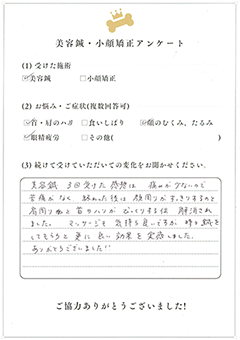 美容鍼・小顔矯正アンケート
(1) 受けた施術
☑美容鍼 □小顔矯正
(2) お悩み・ご症状(複数回答可)
☑首・肩のハリ □食いしばり ☑顔のむくみ、たるみ
☑眼精疲労 □その他( )
(3) 続けて受けていただいての変化をお聞かせください。
美容鍼 3回受けた感想は 痛みが少ないので
苦痛がなく 終わった後は 顔周りがすっきりするのと
肩周りと首のハリが びっくりする位 解消され
ました。 マッサージも 気持ち良いですが 時々鍼を
してもらうと 更に良い効果を実感しました。
ありがとうございます!!
ご協力ありがとうございました!